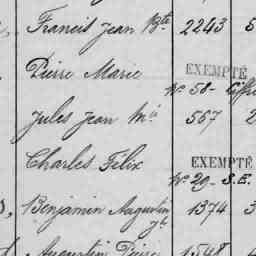 Francis Jean Bte 2243
Pierre Marie EXEMPTÉ
No 58-
Jules Jean Mie 567 2
Charles Félix EXEMPTÉ
No 29- S.E.
Benjamin Augustin 1374 3
Augustin Pierre 1548